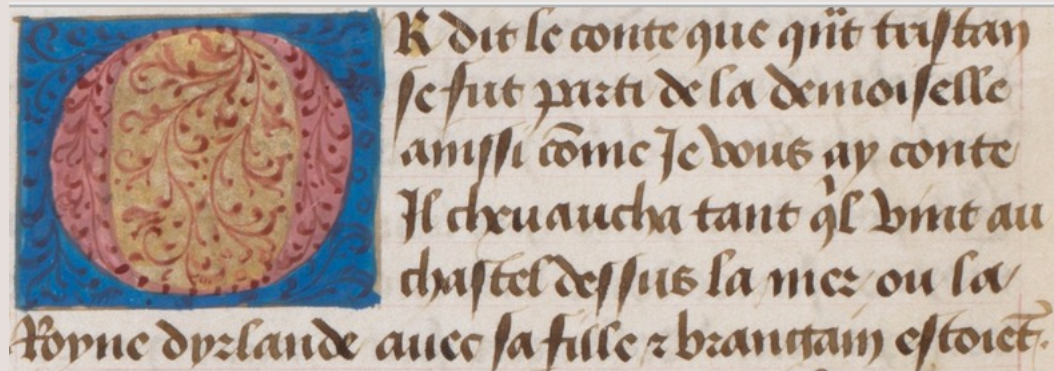 OR dit le conte que qn̄t tristan
se fut parti de la demoiselle
ainssi cōme Je vous ay conte
Il cheuaucha tant ql̉ vint au
chastel dessus la mer ou la
Royne dyrlande auec sa fille ⁊ brangain estoiēt.